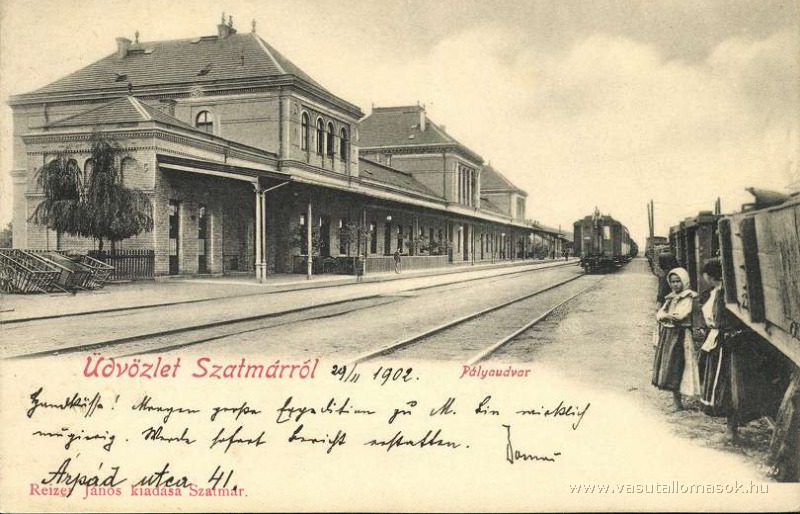 Üdvözlet Szatmárról 29/II 1902.
Pályaudvar
Handküsse! Morgen große Expedition zu M. Bin wirklich
neugierig. Werde sofort bericht erstatten.
Árpád utca 41.
Reizer János kiadása Szatmár.
www.vasutallomasok.hu